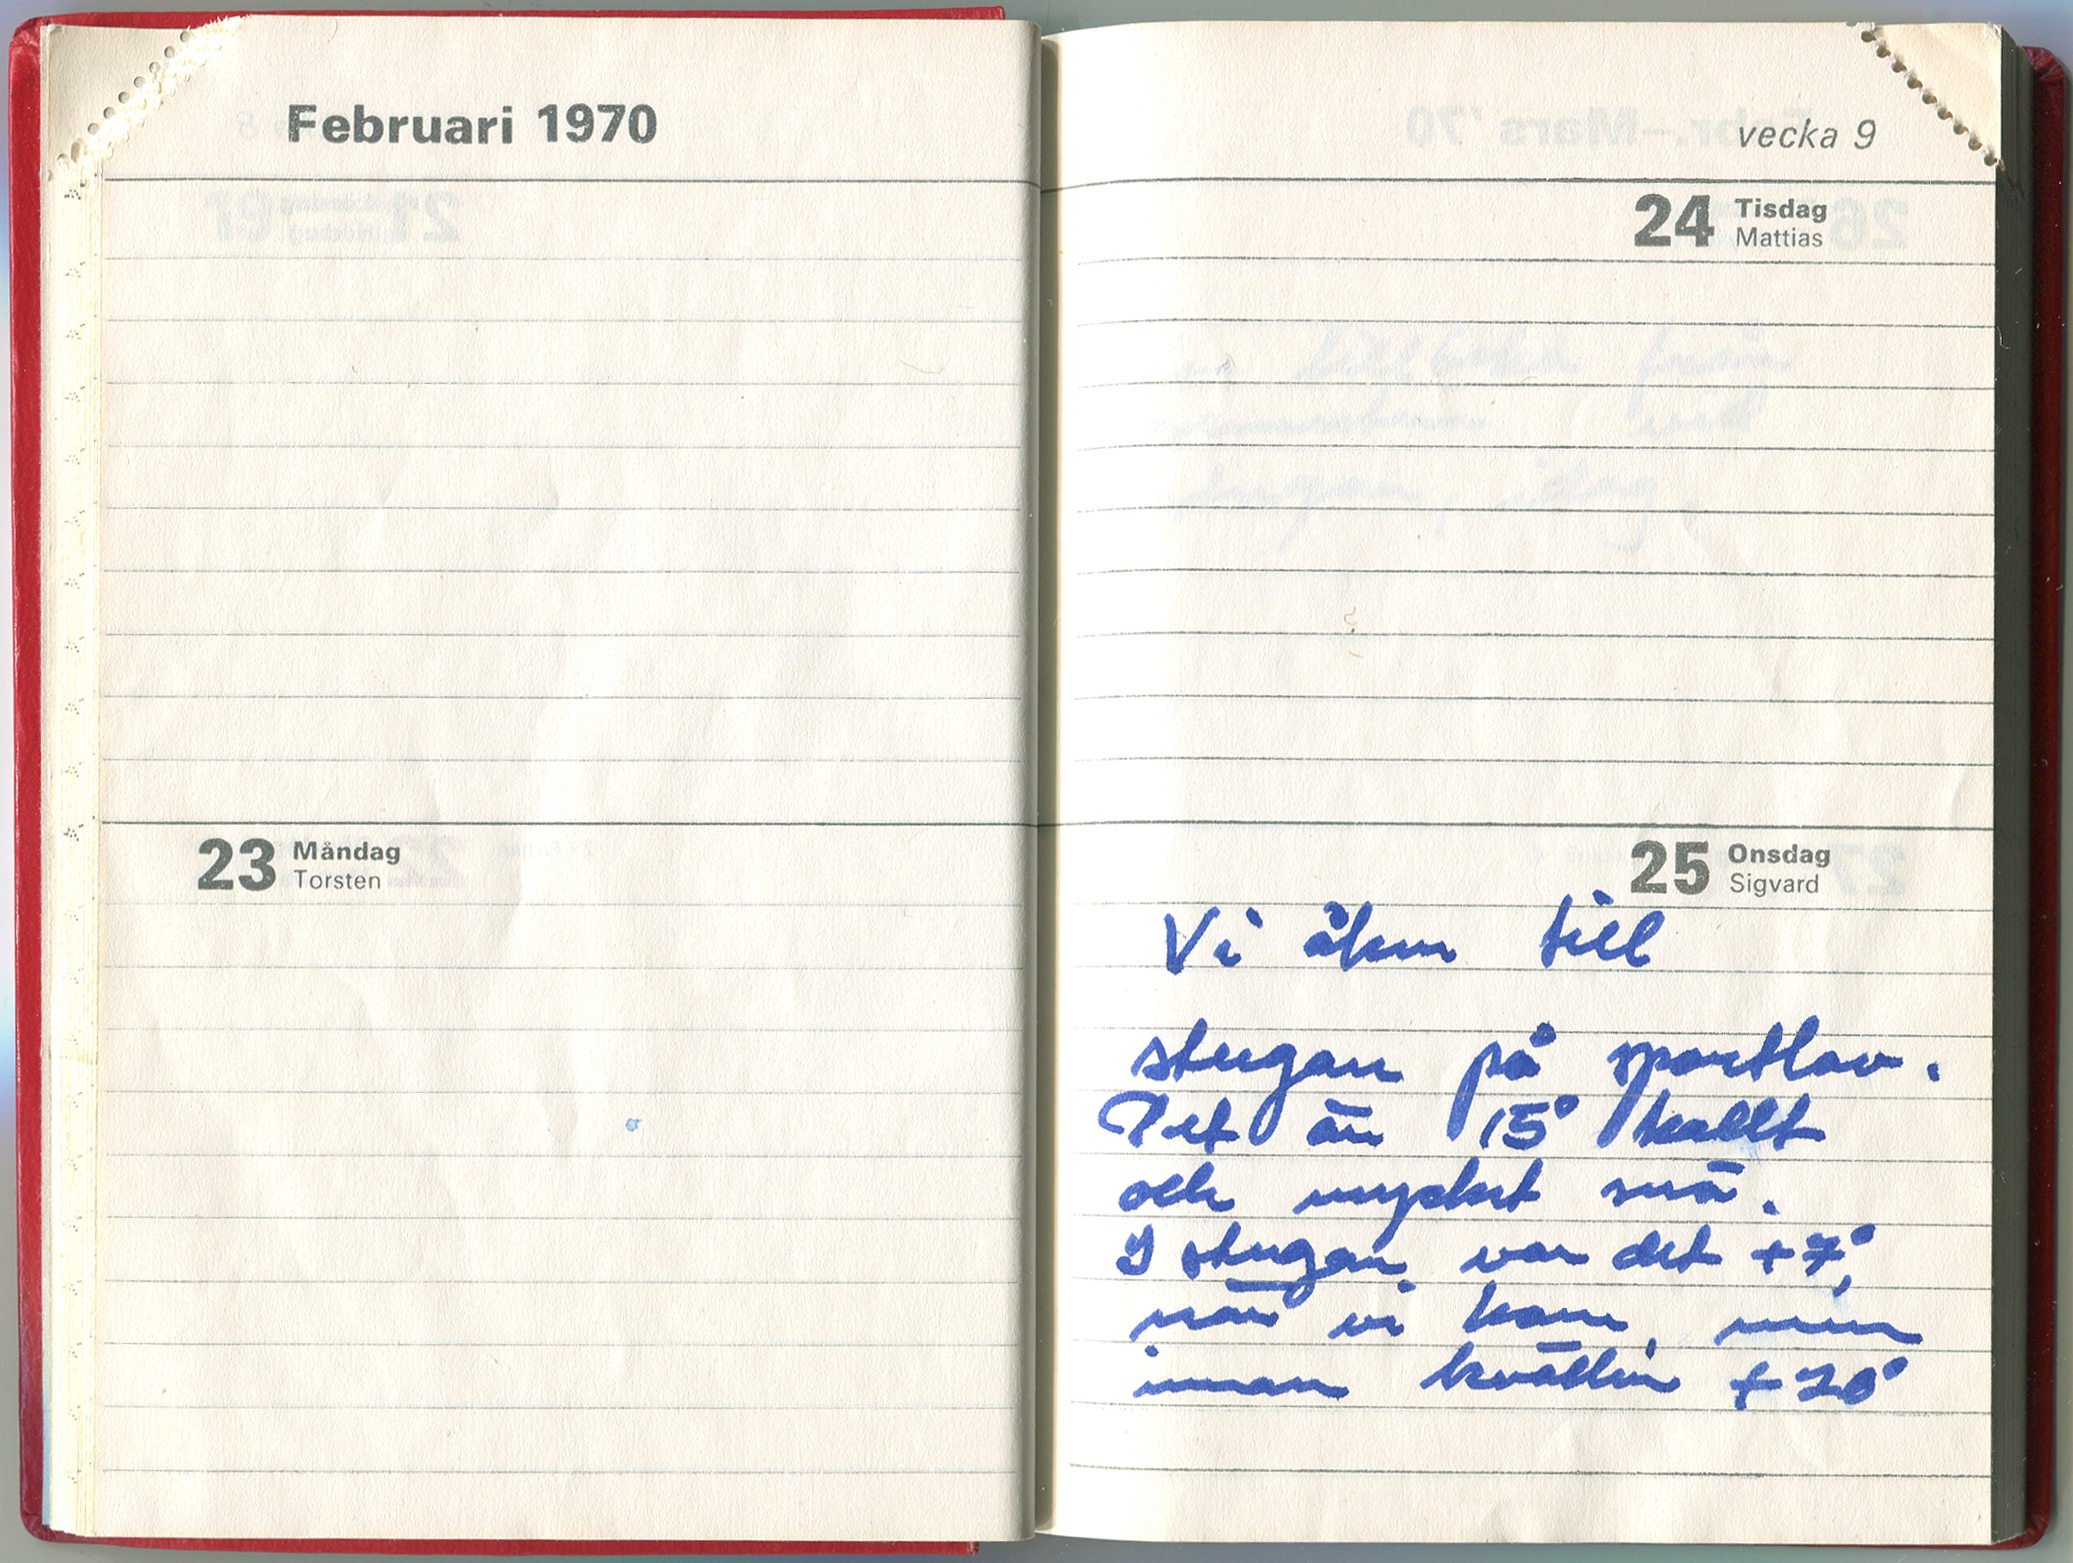 Februari 1970
23 Måndag
Torsten
vecka 9
24 Tisdag
Mattias
25 Onsdag
Sigvard
Vi åker till
stugan på sportlov.
Det är 15° kallt
och mycket snö.
I stugan var det +7°,
när vi kom, men
innan kvällen +20°